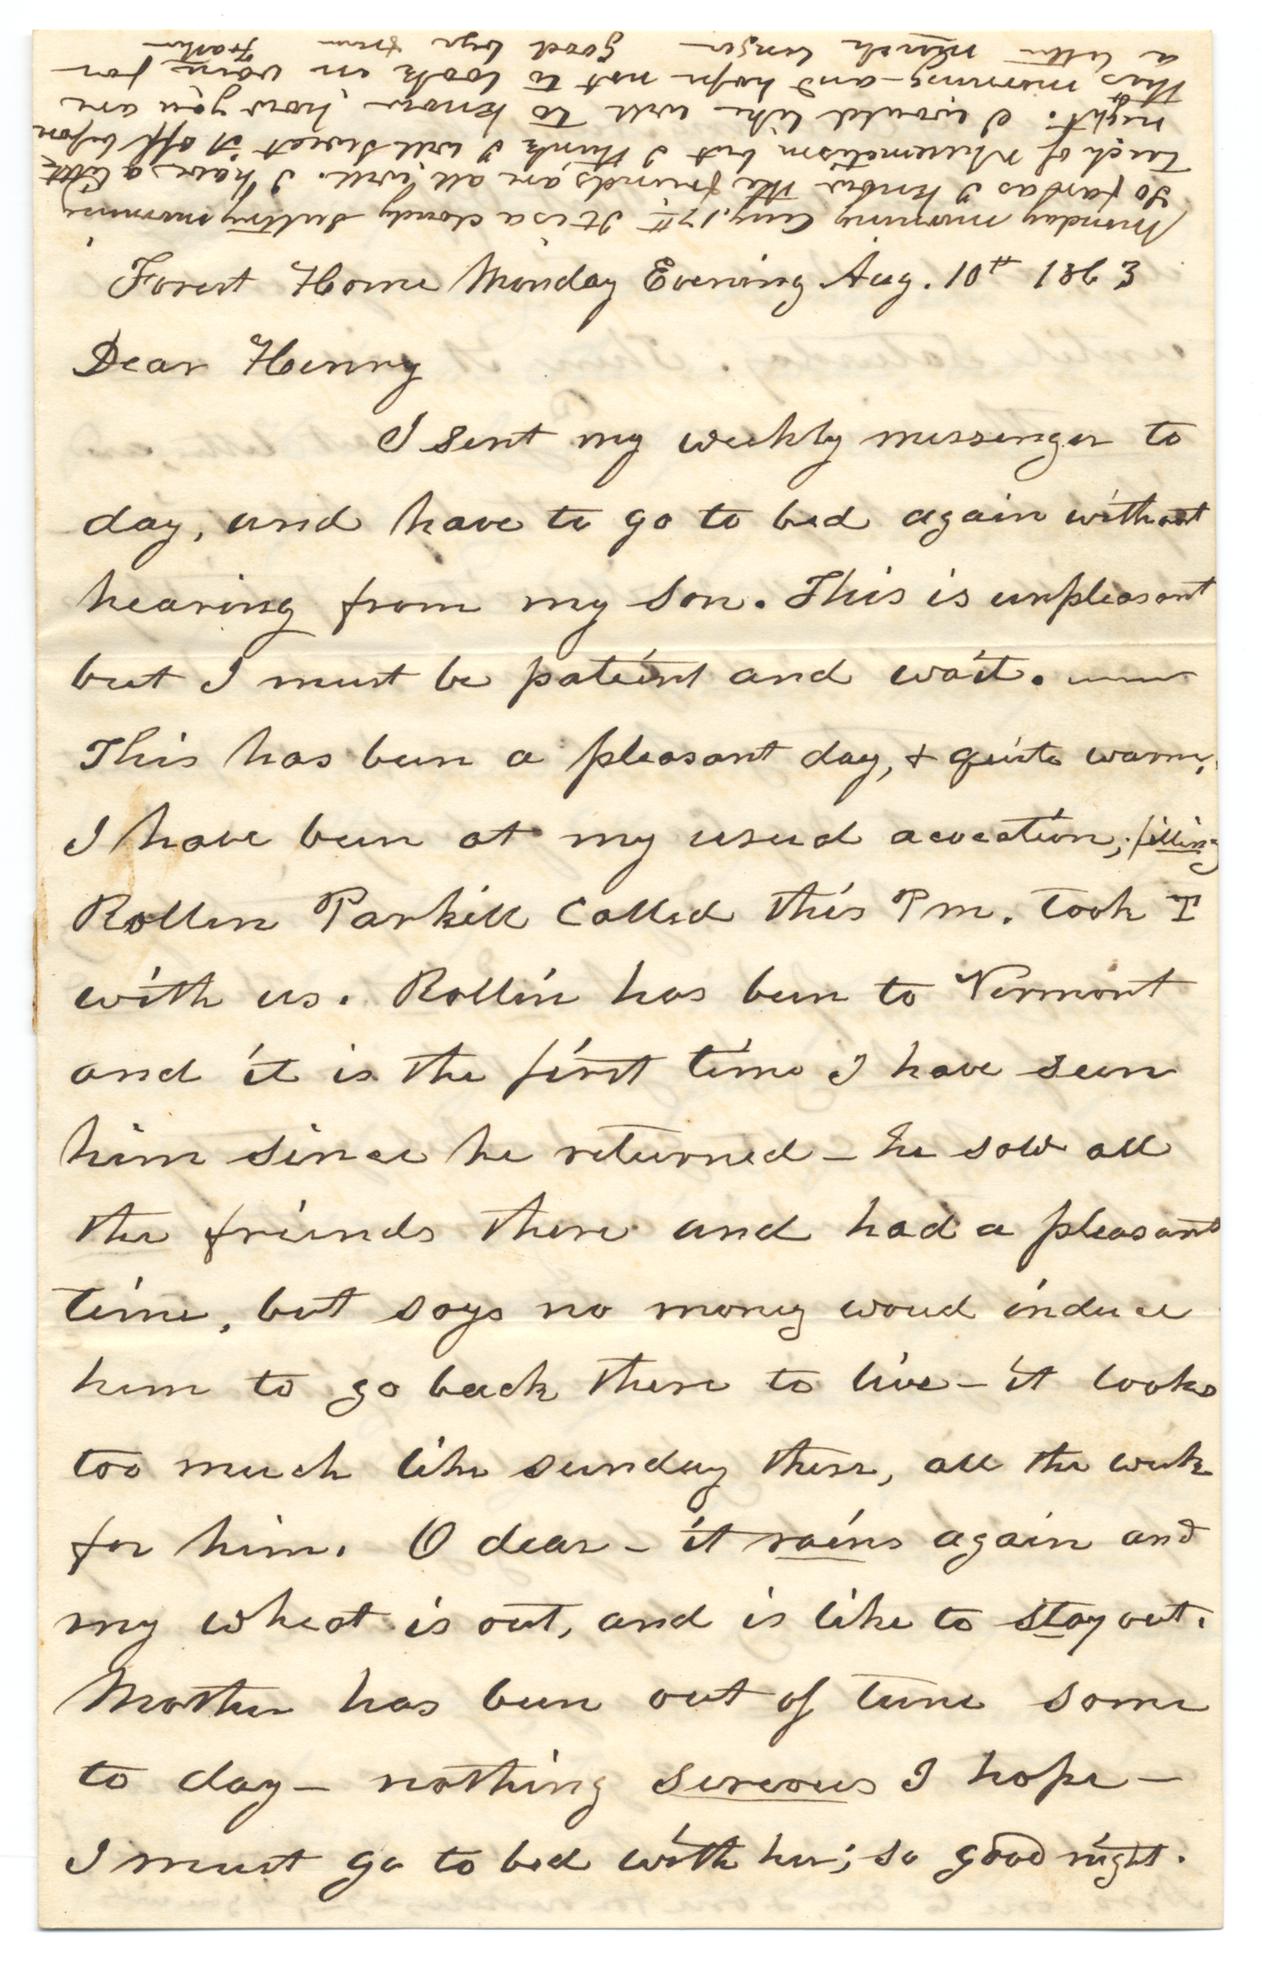 Monday morning Aug. 17th It is a cloudy sultry morning
So far as I know the friends are all well. I have a little
Tuch of Rheumetism but I think I will sweat it off before
night. I would like well to know how you are
this morning - and hope not to look in vain for
a letter much longer good bye from Father
Forest Home Monday Evening Aug. 10th 1863
Dear Henry
I sent my weekly messenger to
day, and have to go to bed again without
hearing from my son. This is unpleasant
but I must be patient and wait.
This has been a pleasant day, + quite warm,
I have been at my usual avocation,
Rollin Parkill Called this Pm. Took T
with us. Rollin has been to Vermont
and it is the first time I have seen
him since he returned - he saw all
the friends there and had a pleasant
time, but says no money woud induce
him to go back there to live - it looks
too much like sunday there, all the week
for him. O dear - it rains again and
my wheat is out, and is like to stay out.
Mother has been out of tune some
to day - nothing sereous I hope -
I must go to bed with her; so good night.